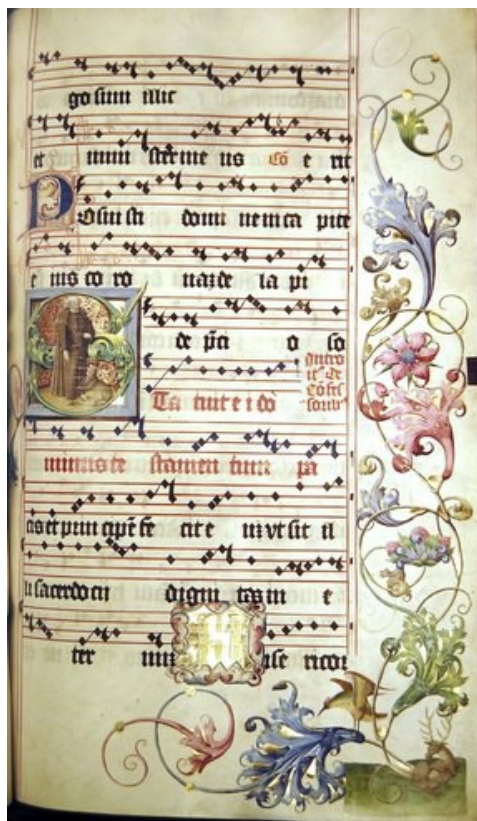 go sum illic
et mini ster me us Cō e rit
Posui sti domi ne in ca pite
e ius co ro nam de la pi
de p̄ci o so
Introit' De Cōfes
STa tuit e i dō
minus te stamen tum pa
cis et prin cipē fe cit e um vt sit il
li sacerdo cii digni tas in e
ter num ise ricor